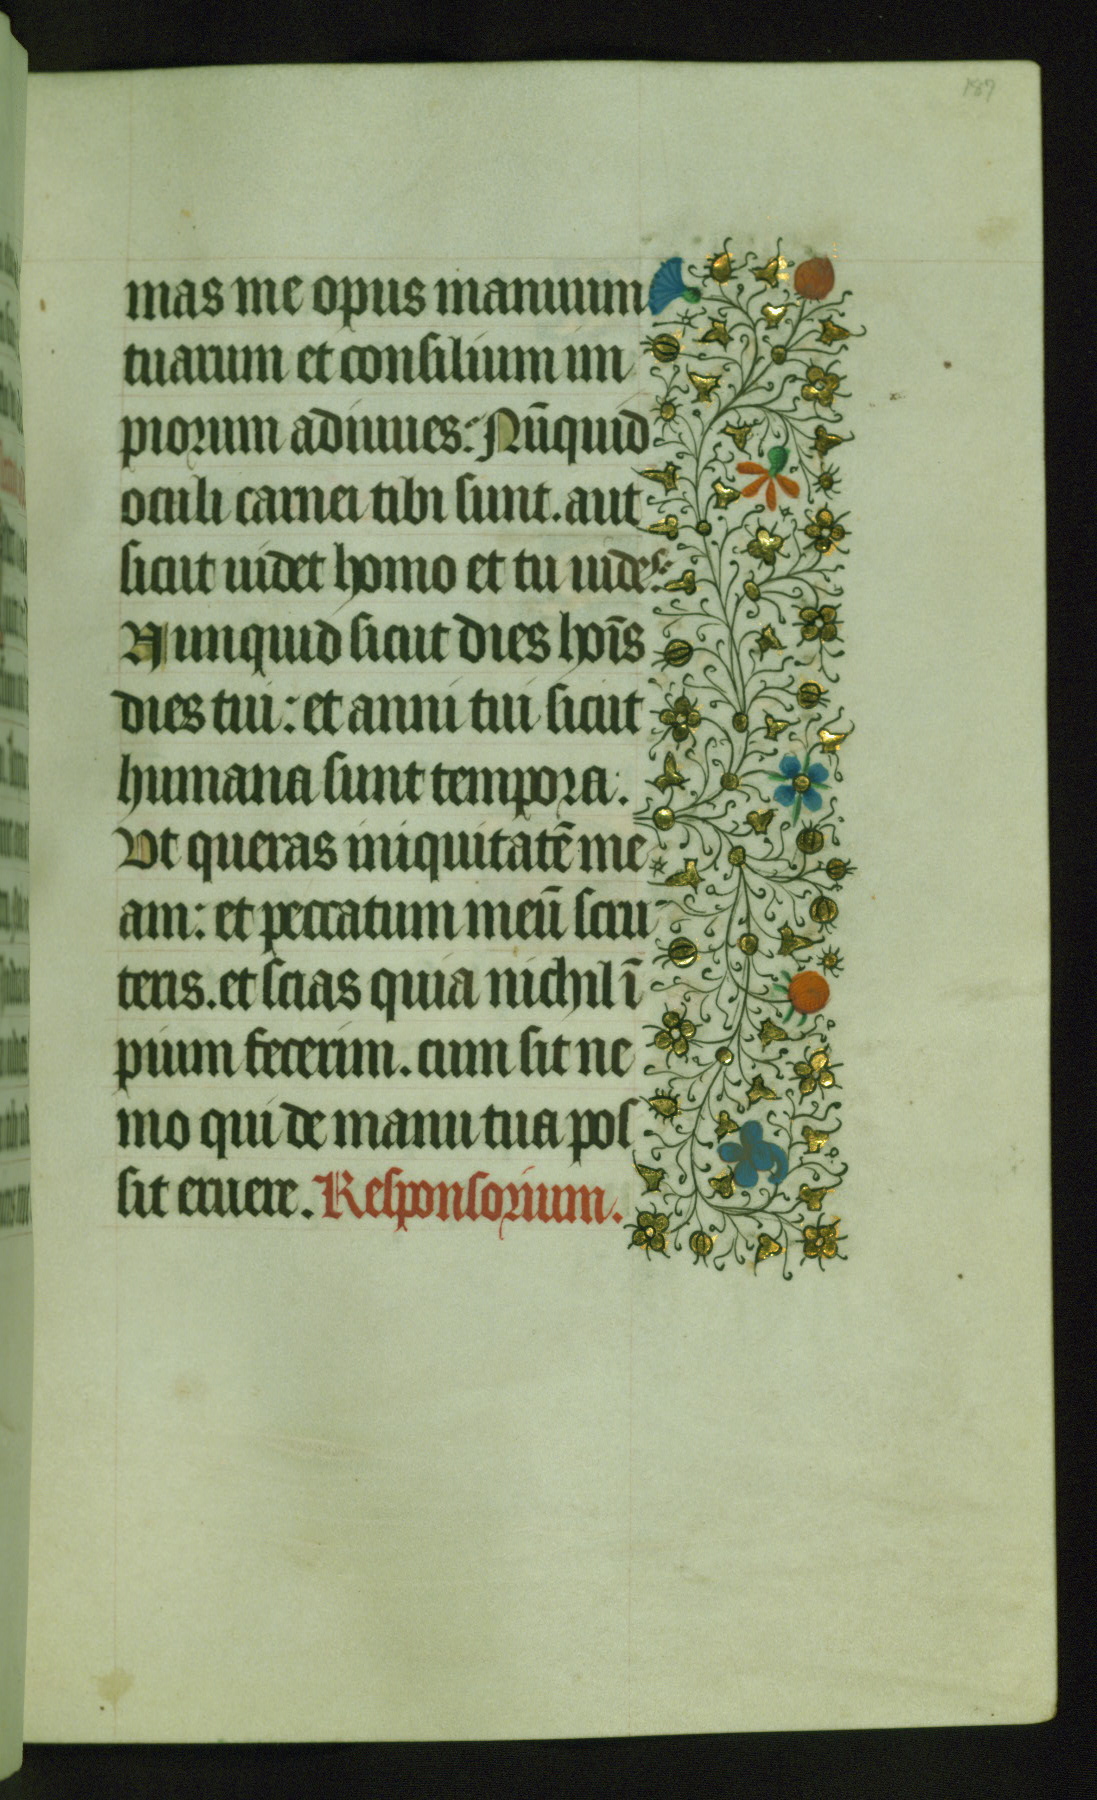 187
mas me opus manuum
tuarum et consilium im
piorum adiuues: Nūquid
oculi carnei tibi sunt. aut
sicut uidet homo et tu uides:
Nunquid sicut dies hoīs
dies tui: et anni tui sicut
humana sunt tempora.
Vt queras iniquitatē me
am: et peccatum meū scru
teris. et scias quia nichil ī
pium fecerim. cum sit ne
mo qui de manu tua pos
sit eruere. Responsorium.